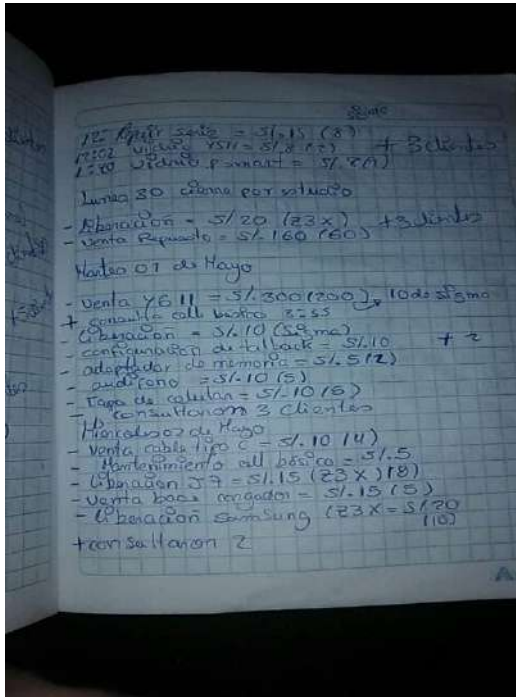 12: Repair serie = S/. 15 (8)
12:02 vidrio Y511 = S/. 8 (2) + 3 clientes
1:20 vidrio P.smart = S/. 8 (2)
Lunes 30
- Liberación = S/. 20 (Z3X) + 3 clientes
- Venta Repuesto = S/. 160 (60)
Martes 01 de Mayo
- Venta Y6 II = S/. 300 (200) 10 de sigma
+ consulta cell basico 3:55
- Liberación = S/. 10 (Sigma)
- configuración de talback = S/. 10 + 2
- adaptador de memoria = S/. 5 (2)
- audífono = S/. 10 (5)
- Tapa de celular = S/. 10 (5)
- consultaron 3 clientes
Miercoles 02 de Mayo
- Venta cable tipo C = S/. 10 (4)
- Mantenimiento cell básico = S/. 5
- Liberación J7 = S/. 15 (Z3X) (8)
- Venta base cargador = S/. 15 (5)
- Liberación Samsung (Z3X = S/. 20
(10)
+ consultaron 2